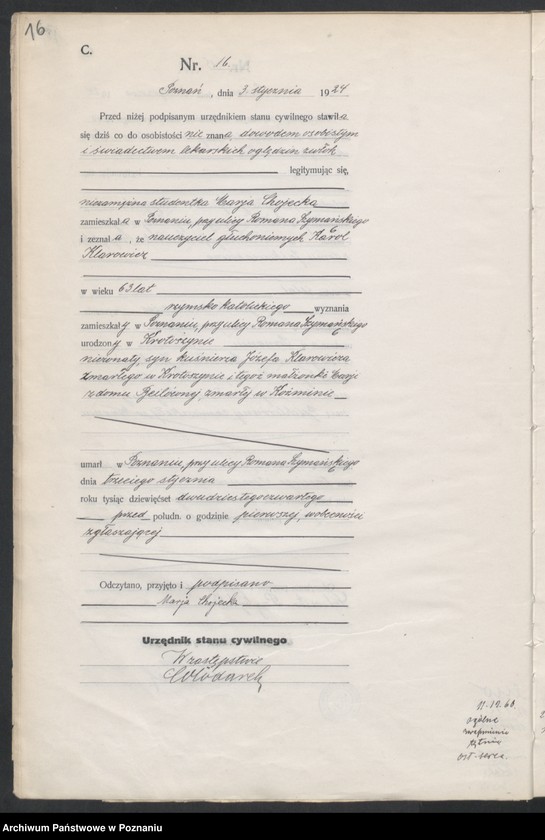 16
C.
Nr. 16.
Poznań, dnia 3 stycznia 1924
Przed niżej podpisanym urzędnikiem stanu cywilnego stawiła
się dziś co do osobistości nie znana, dowodem osobistym
i świadectwem lekarskich oględzin zwłok
legitymując się,
niezamężna studentka Marja Chojecka
zamieszkała w Poznaniu, przy ulicy Romana Szymańskiego 6
i zeznała, że nauczyciel głuchoniemych Karol
Klarowicz
w wieku 63 lat
rzymsko katolickiego wyznania
zamieszkały w Poznaniu, przy ulicy Romana Szymańskiego 6
urodzony w Krotoszynie
nieżonaty, syn kuśnierza Józefa Klarowicza
zmarłego w Krotoszynie i tegoż małżonki Marji
z domu zmarłej w Koźminie
umarł w Poznaniu, przy ulicy Romana Szymańskiego 6
dnia trzeciego stycznia
roku tysiąc dziewięćset dwudziestegoczwartego
przed połudn. o godzinie pierwszej, w obecności
zgłaszającej
Odczytano, przyjęto i podpisano
Marja Chojecka
Urzędnik stanu cywilnego
W zastępstwie
11.12.60.
ogólne
zwapnienie
tętnic
osł. serca.
Archiwum Państwowe w Poznaniu